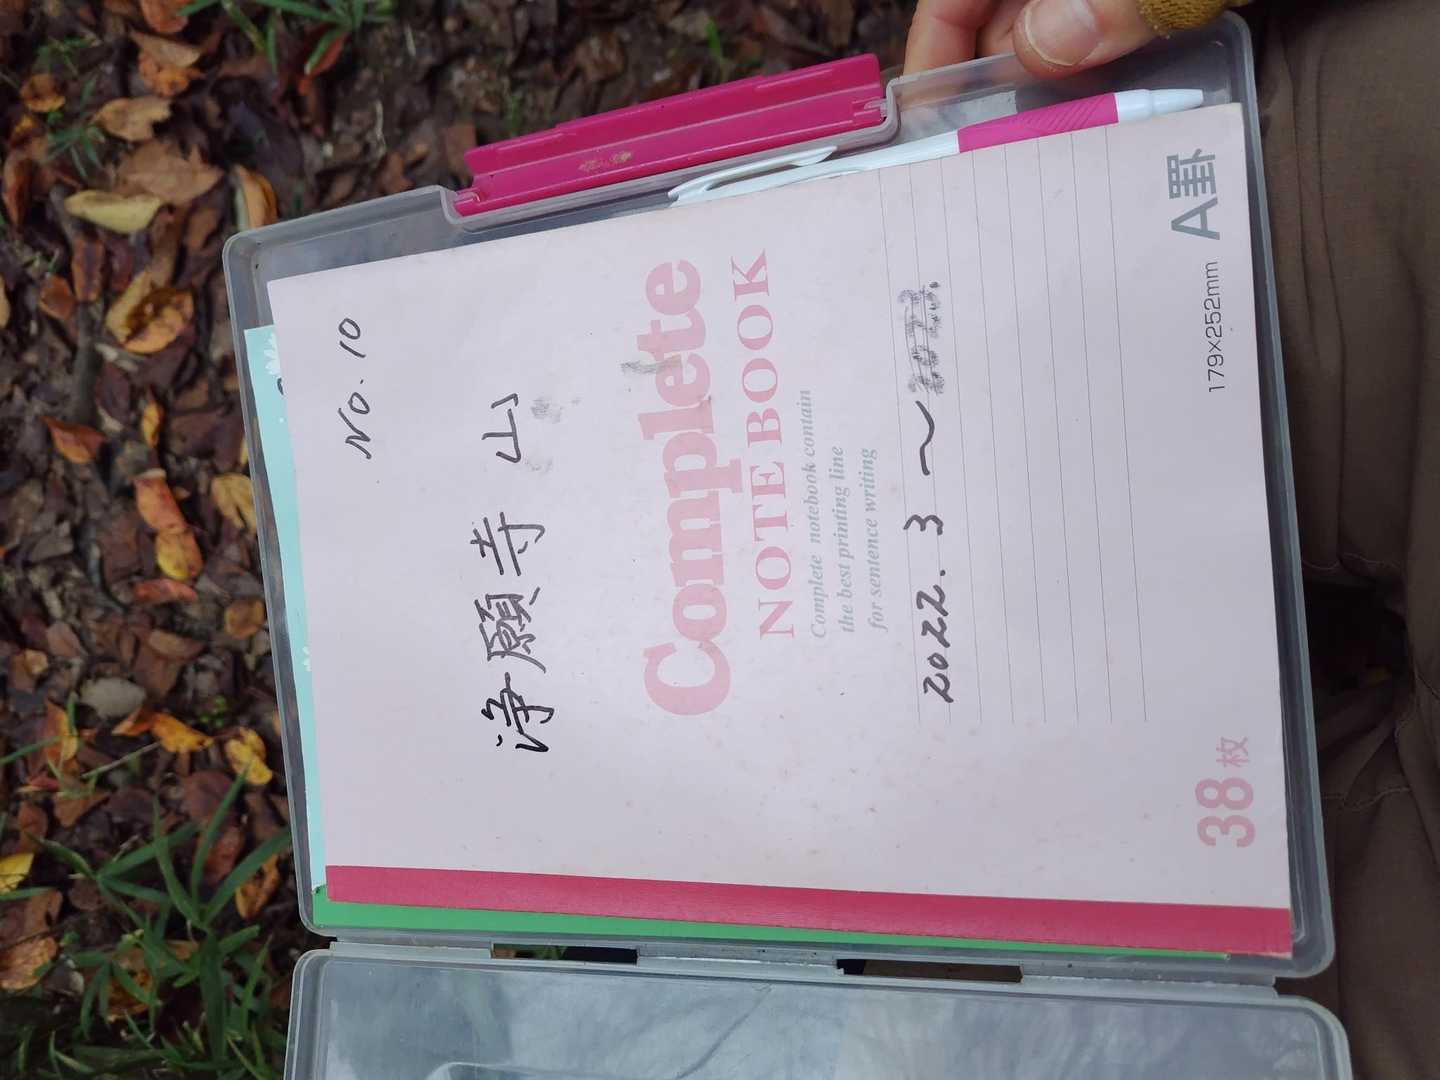 No. 10
浄願寺山
Complete
NOTEBOOK
Complete notebook contain
the best printing line
for sentence writing
2022. 3 〜
38枚
179×252mm A罫